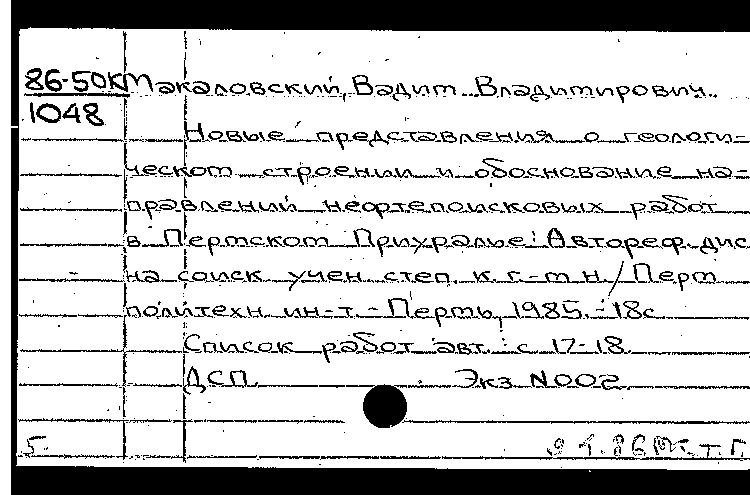 86-50К Макаловский, Вадим Владимирович.
1048
Новые представления о геологи-
ческом строении и обоснование на-
правлений нефтепоисковых работ
в Пермском Приуралье: Автореф. дис
на соиск учен степ. к. г.-м н. / Перм
политехн. ин-т. - Пермь, 1985. - 18с
Список работ авт.: с 17-18.
ДСП. Экз N002.
5.